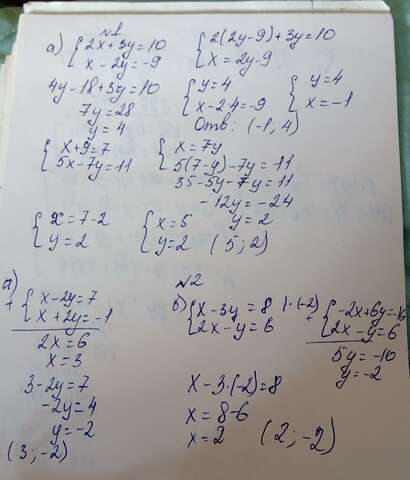 №1
а) { 2x + 3y = 10
x - 2y = -9
{ 2(2y-9) + 3y = 10
x = 2y-9
4y - 18 + 3y = 10
7y = 28
y = 4
{ y = 4
x - 2·4 = -9
{ y = 4
x = -1
Отв: (-1; 4)
{ x + y = 7
5x - 7y = 11
{ x = 7y
5(7-y) - 7y = 11
35 - 5y - 7y = 11
-12y = -24
y = 2
{ x = 7-2
y = 2
{ x = 5
y = 2 (5; 2)
№2
а)
+ { x - 2y = 7
x + 2y = -1
2x = 6
x = 3
3 - 2y = 7
-2y = 4
y = -2
(3; -2)
б) { x - 3y = 8 | · (-2)
2x - y = 6
+ { -2x + 6y = -16
2x - y = 6
5y = -10
y = -2
x - 3·(-2) = 8
x = 8-6
x = 2 (2; -2)